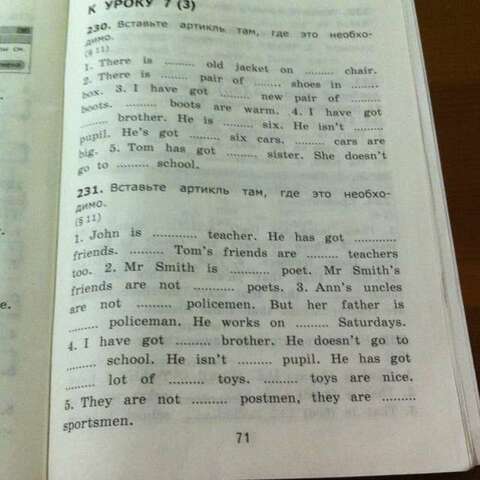 К УРОКУ 7 (3)
230. Вставьте артикль там, где это необхо-
димо.
(§ 11)
1. There is ......... old jacket on ......... chair.
2. There is ......... pair of ......... shoes in .........
box. 3. I have got ......... new pair of .........
boots. ......... boots are warm. 4. I have got
......... brother. He is ......... six. He isn't .........
pupil. He's got ......... six cars, ......... cars are
big. 5. Tom has got ......... sister. She doesn't
go to ......... school.
231. Вставьте артикль там, где это необхо-
димо.
(§ 11)
1. John is ......... teacher. He has got .........
friends. ......... Tom's friends are ......... teachers
too. 2. Mr Smith is ......... poet. Mr Smith's
friends are not ......... poets. 3. Ann's uncles
are not ......... policemen. But her father is
......... policeman. He works on ......... Saturdays.
4. I have got ......... brother. He doesn't go to
......... school. He isn't ......... pupil. He has got
......... lot of ......... toys. ......... toys are nice.
5. They are not ......... postmen, they are .........
sportsmen.
71